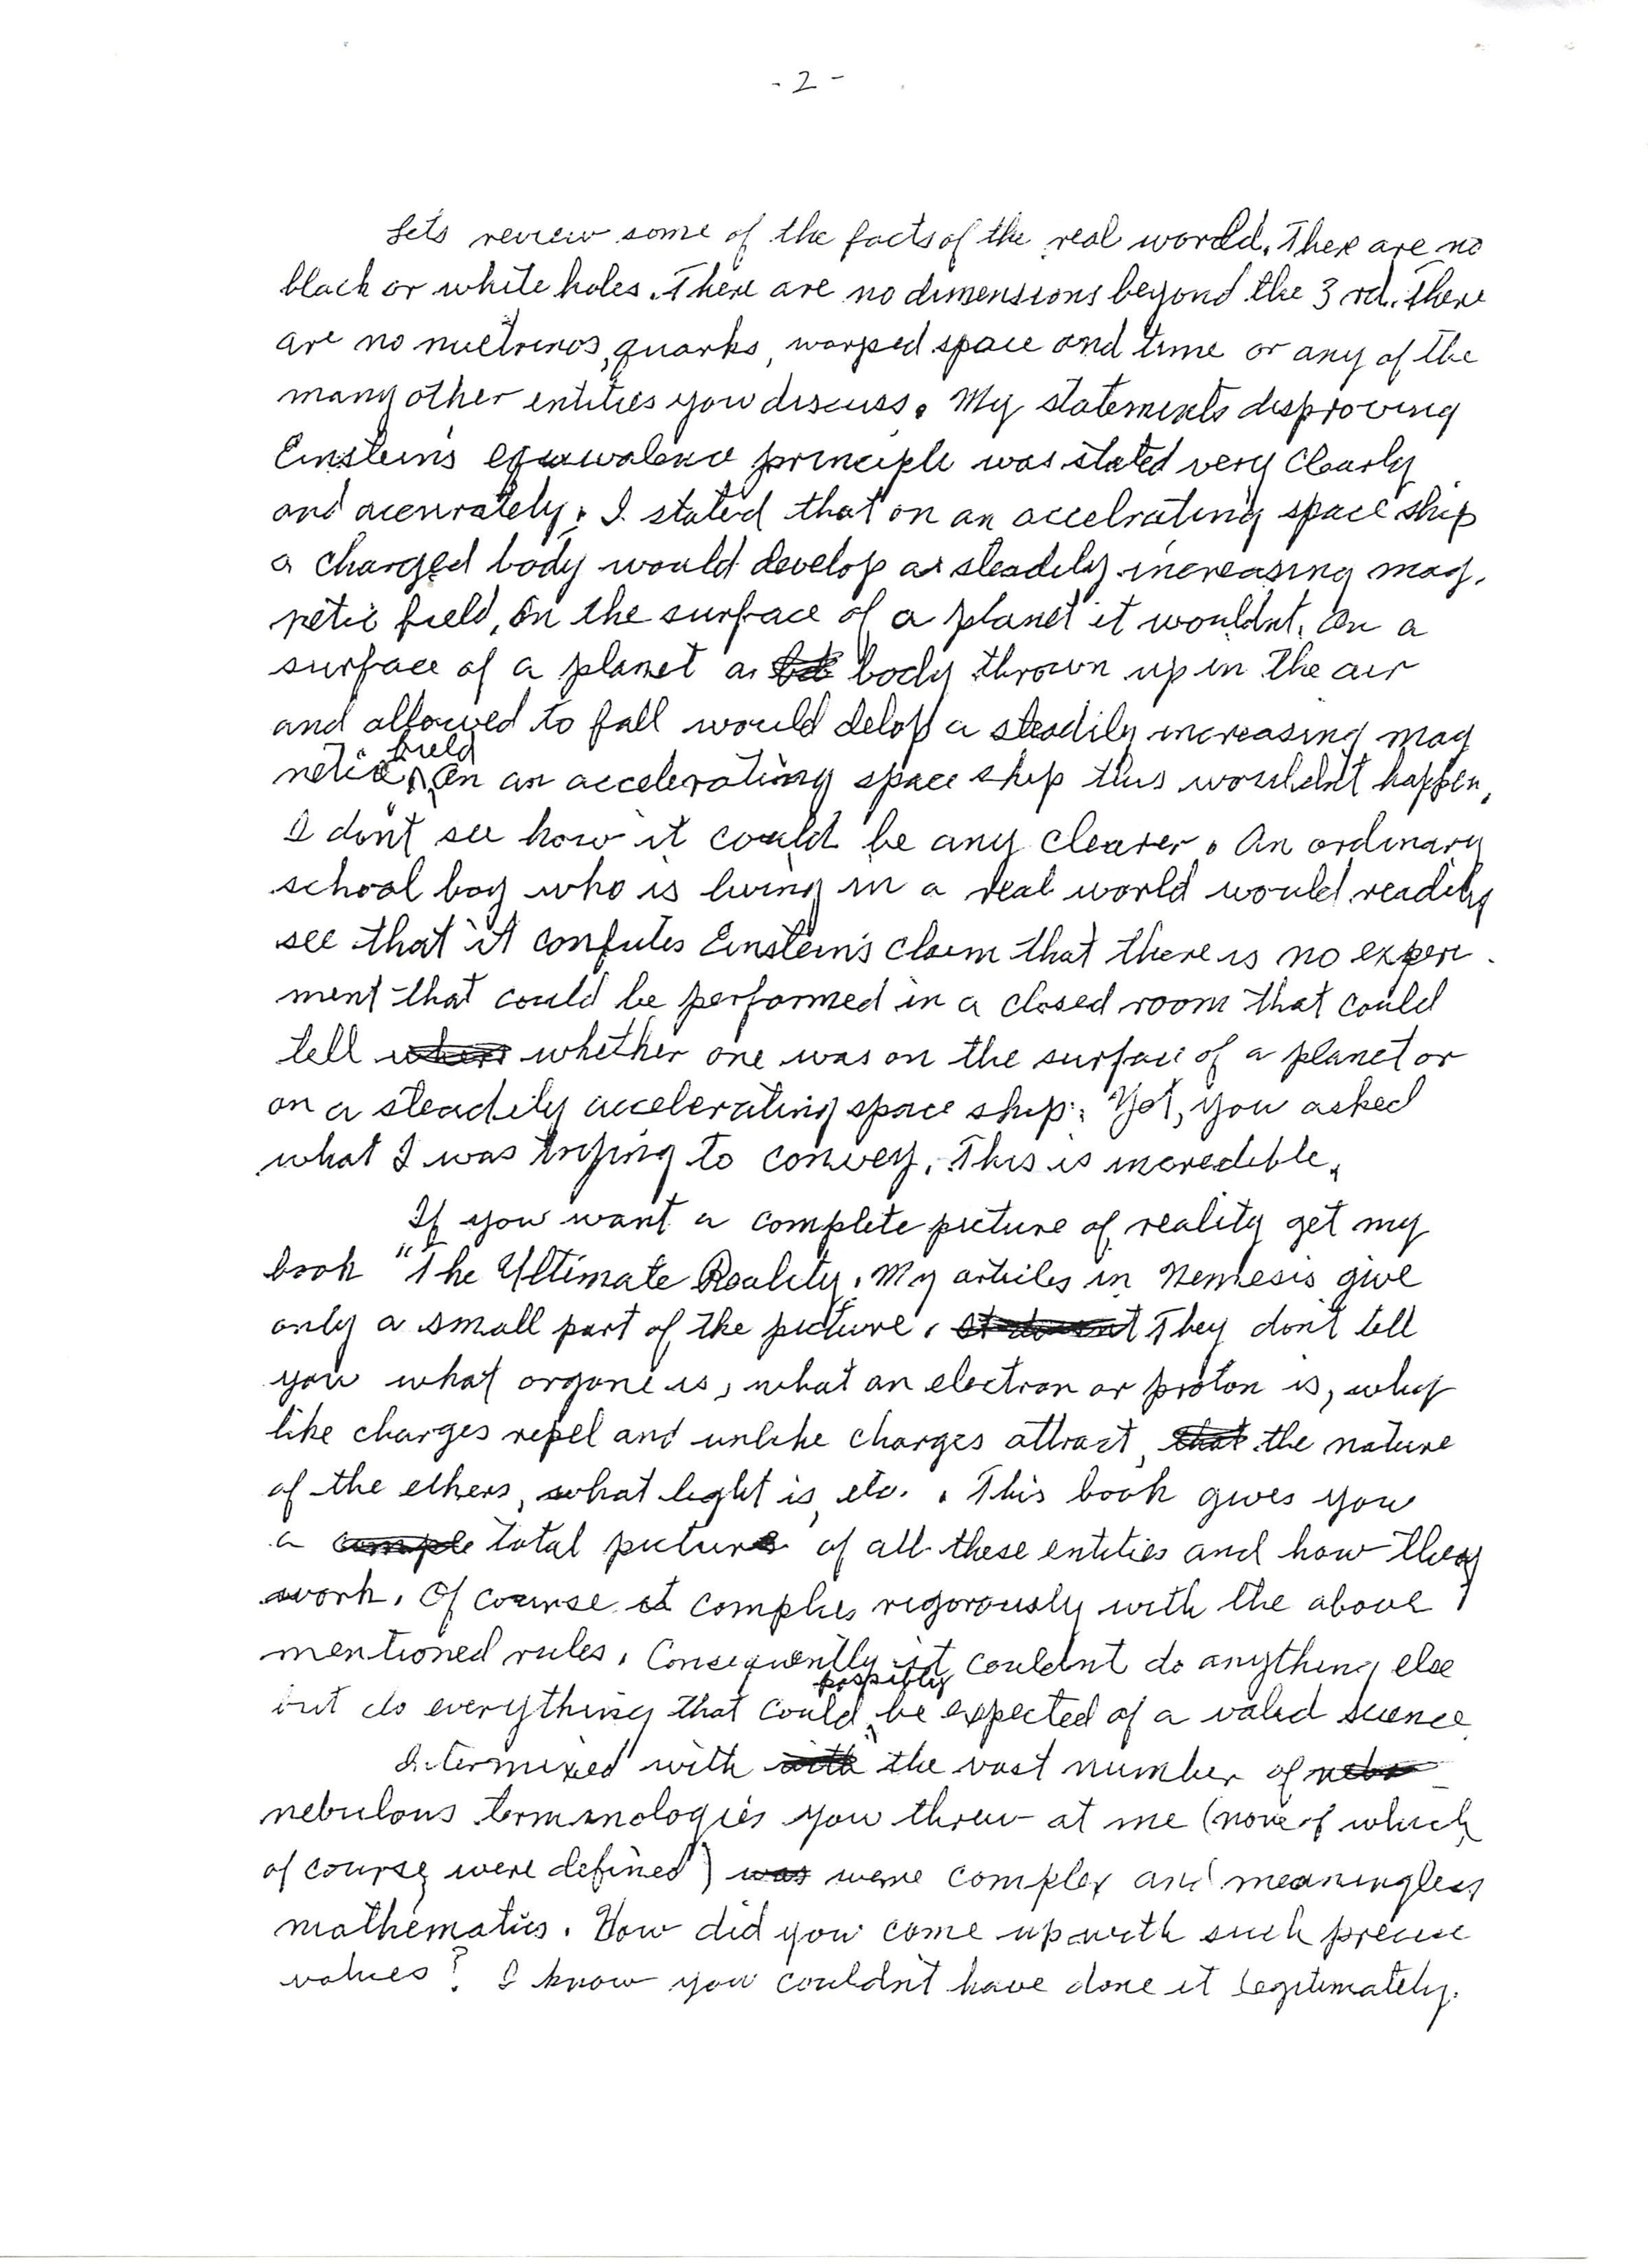 - 2 -
Lets review some of the facts of the real world. There are no
black or white holes. There are no dimensions beyond the 3 rd. There
are no nuetrinos, quarks, warped space and time or any of the
many other entities you discuss. My statements disproving
Einsteins equivalence principle was stated very clearly
and accurately. I stated that on an accelrating space ship
a charged body would develop a steadily increasing mag.
netic field, On the surface of a planet it wouldnt. On a
surface of a planet a body thrown up in the air
and allowed to fall would delop a steadily increasing mag
netic field. On an accelerating space ship this wouldn't happen,
I don't see how it could be any clearer. An ordinary
school boy who is living in a real world would readily
see that it confutes Einstein's claim that there is no experi-
ment that could be performed in a closed room that could
tell whether one was on the surface of a planet or
on a steadily accelerating space ship. Yet, you asked
what I was trying to convey. This is incredible.
If you want a complete picture of reality get my
book "The Ultimate Reality. My articles in Nemesis give
only a small part of the picture. They don't tell
you what orgone is, what an electron or proton is, why
like charges repel and unlike charges attract, the nature
of the ethers, what light is, etc. . This book gives you
a total picture of all these entities and how they
work. Of course it complies rigorously with the above
mentioned rules. Consequently it couldn't do anything else
but do everything that could possibly be expected of a valid science
Intermixed with the vast number of
nebulous terminologies you threw at me (none of which
of course were defined) were complex and meaningless
mathematics. How did you come up with such precise
values? I know you couldn't have done it legitimately.